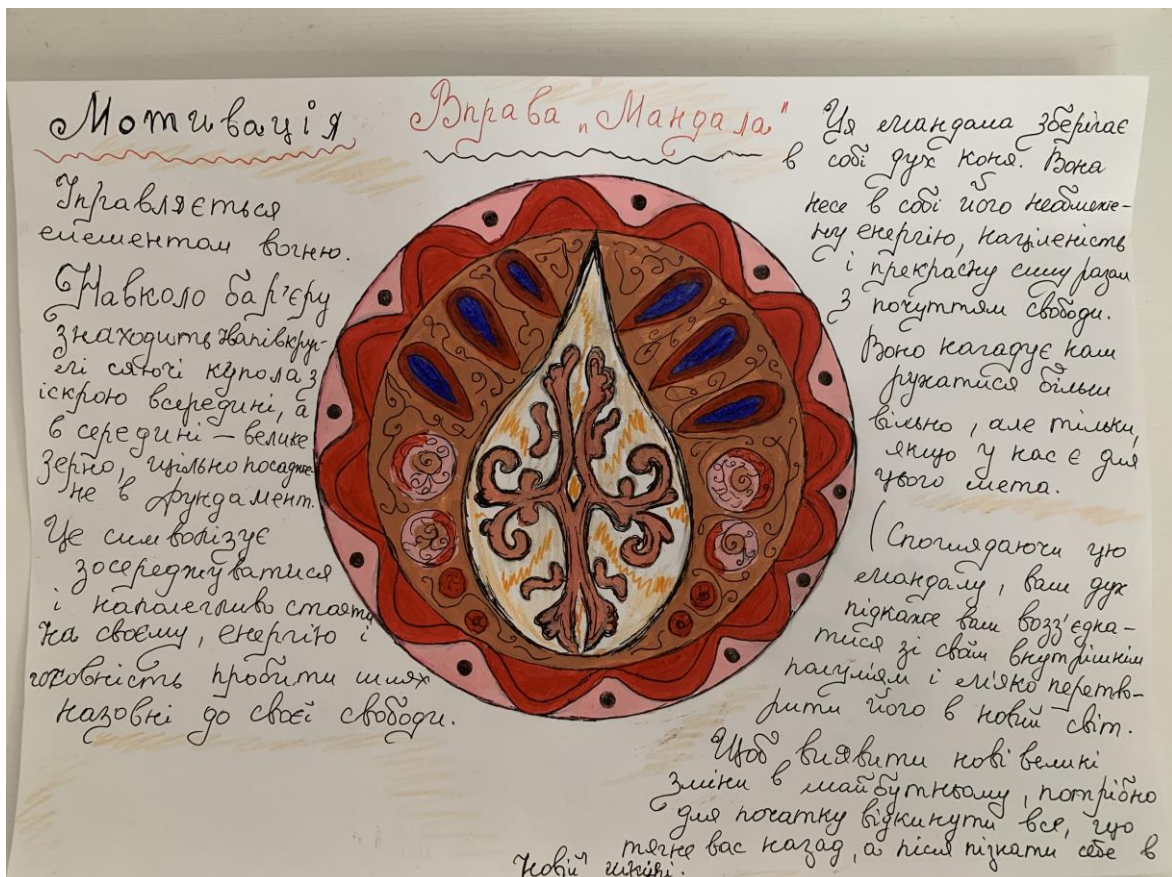 Мотивація
Вправа „Мандала"
Управляється
елементом вогню.
Навколо бар'єру
знаходить напівкруг-
лі сяючі купола з
іскрою всередині, а
в середині – велике
зерно, щільно посадже-
не в фундамент.
Це символізує
зосереджуватися
і наполегливо стояти
на своєму, енергію і
готовність пробити шлях
назовні до своєї свободи.
Ця мандала зберігає
в собі дух коня. Вона
несе в собі його необмеже-
ну енергію, націленість
і прекрасну силу разом
з почуттям свободи.
Воно нагадує нам
рухатися більш
вільно, але тільки,
якщо у нас є для
цього мета.
(Споглядаючи цю
мандалу, ваш дух
підкаже вам возз'єдна-
тися зі своїм внутрішнім
полум'ям і м'яко перетво-
рити його в новий світ.
Щоб виявити нові великі
зміни в майбутньому, потрібно
для початку відкинути все, що
тягне вас назад, а після пізнати себе в
новій шкірі.